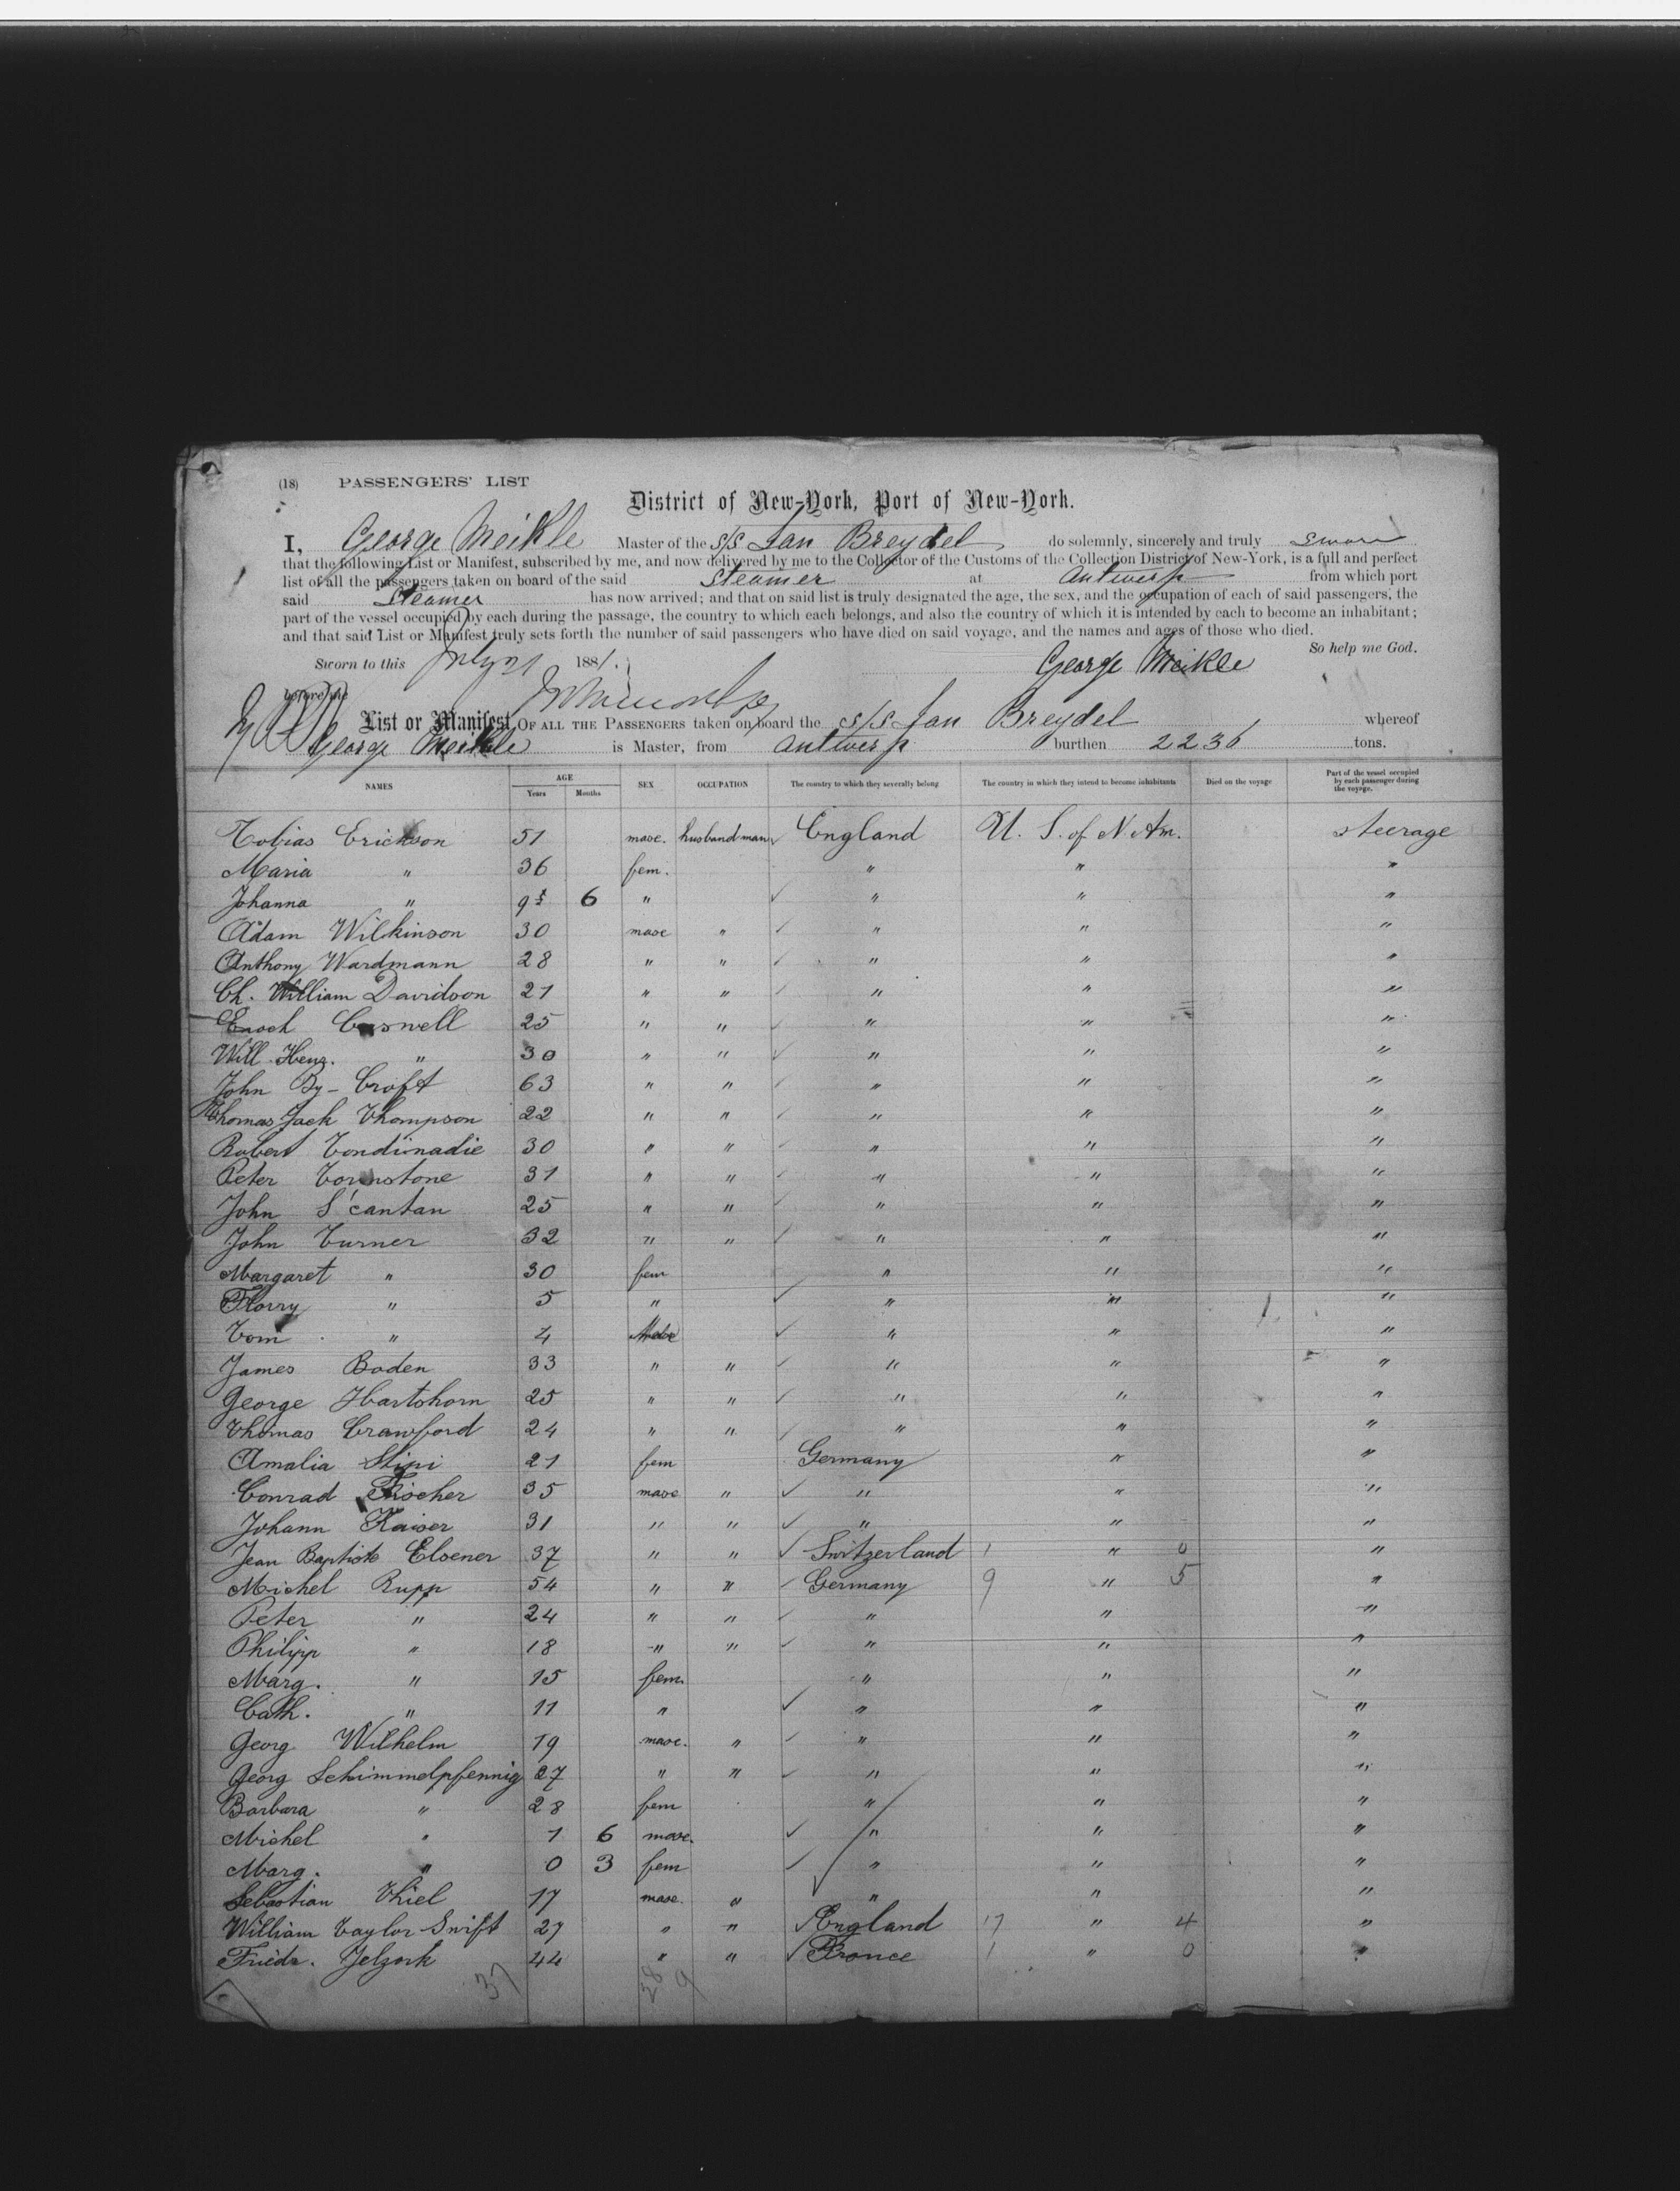 (18) PASSENGERS' LIST
District of New-York, Port of New-York.
I, George Meikle Master of the s/s Jan Breydel do solemnly, sincerely and truly swear
that the following List or Manifest, subscribed by me, and now delivered by me to the Collector of the Customs of the Collection District of New-York, is a full and perfect
list of all the passengers taken on board of the said Steamer at Antwerp from which port
said Steamer has now arrived; and that on said list is truly designated the age, the sex, and the occupation of each of said passengers, the
part of the vessel occupied by each during the passage, the country to which each belongs, and also the country of which it is intended by each to become an inhabitant;
and that said List or Manifest truly sets forth the number of said passengers who have died on said voyage, and the names and ages of those who died.
So help me God.
Sworn to this July 21 1881. George Meikle
before me
List or Manifest OF ALL THE PASSENGERS taken on board the s/s Jan Breydel whereof
George Meikle is Master, from Antwerp burthen 2236 tons.
NAMES AGE Years Months SEX OCCUPATION The country to which they severally belong The country in which they intend to become inhabitants Died on the voyage Part of the vessel occupied by each passenger during the voyage.
Tobias Erickson 51 masc. husbandman England U. S. of N. Am. steerage
Maria " 36 fem. " " "
Johanna " 9 6 " " " "
Adam Wilkinson 30 masc " " " "
Anthony Wardmann 28 " " " " "
Ch. William Davidson 21 " " " " "
Enoch Caswell 25 " " " " "
Will. Heny. " 30 " " " " "
John By-Croft 63 " " " " "
Thomas Jack Thompson 22 " " " " "
Robert Tondinadie 30 " " " " "
Peter Tormstone 31 " " " " "
John S'cantan 25 " " " " "
John Turner 32 " " " " "
Margaret " 30 fem " " "
Florry " 5 " " " "
Tom " 4 Masc " " "
James Boden 33 " " " " "
George Hartshorn 25 " " " " "
Thomas Crawford 24 " " " " "
Amalia Stipi 21 fem Germany " "
Conrad Fischer 35 masc " " " "
Johann Kaiser 31 " " " " "
Jean Baptiste Elsener 37 " " Switzerland 1 " 0 "
Michel Rupp 54 " " Germany 9 " 5 "
Peter " 24 " " " " "
Philipp " 18 " " " " "
Marg. " 15 fem. " " "
Cath. " 11 " " " "
Georg Wilhelm 19 masc. " " " "
Georg Schimmelpfennig 27 " " " " "
Barbara " 28 fem " " "
Michel " 1 6 masc. " " "
Marg. " 0 3 fem " " "
Sebastian Thiel 17 masc. " " " "
William Taylor Swift 27 " " England 17 " 4 "
Friedr. Jelzork 44 " " France 1 " 0 "
37 28 9